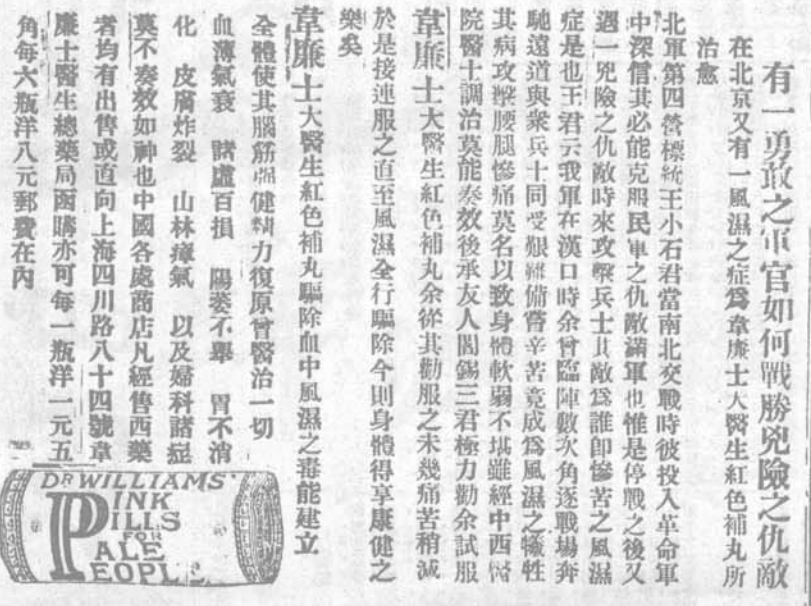 有一勇敢之軍官如何戰勝兇險之仇敵
在北京又有一風濕之症爲韋廉士大醫生紅色補丸所
治愈
北軍第四營標統王小石君當南北交戰時彼投入革命軍
中深信其必能克服民軍之仇敵滿軍也惟是停戰之後又
遇一兇險之仇敵時來攻擊兵士其敵爲誰即慘苦之風濕
症是也王君云我軍在漢口時余曾臨陣數次角逐戰場奔
馳遠道與衆兵士同受艱難備嘗辛苦竟成爲風濕之犧牲
其病攻擊腰腿慘痛莫名以致身體軟弱不堪雖經中西醫
院醫士調治莫能奏效後承友人閻錫三君極力勸余試服
韋廉士大醫生紅色補丸余從其勸服之未幾痛苦稍減
於是接連服之直至風濕全行驅除今則身體得享康健之
樂矣
韋廉士大醫生紅色補丸驅除血中風濕之毒能建立
全體使其腦筋强健精力復原曾醫治一切
血薄氣衰 諸虛百損 陽萎不舉 胃不消
化 皮膚炸裂 山林瘴氣 以及婦科諸症
莫不奏效如神也中國各處商店凡經售西藥
者均有出售或直向上海四川路八十四號韋
廉士醫生總藥局函購亦可每一瓶洋一元五
角每六瓶洋八元郵費在內
DR WILLIAMS'
PINK
PILLS
FOR
PALE
PEOPLE